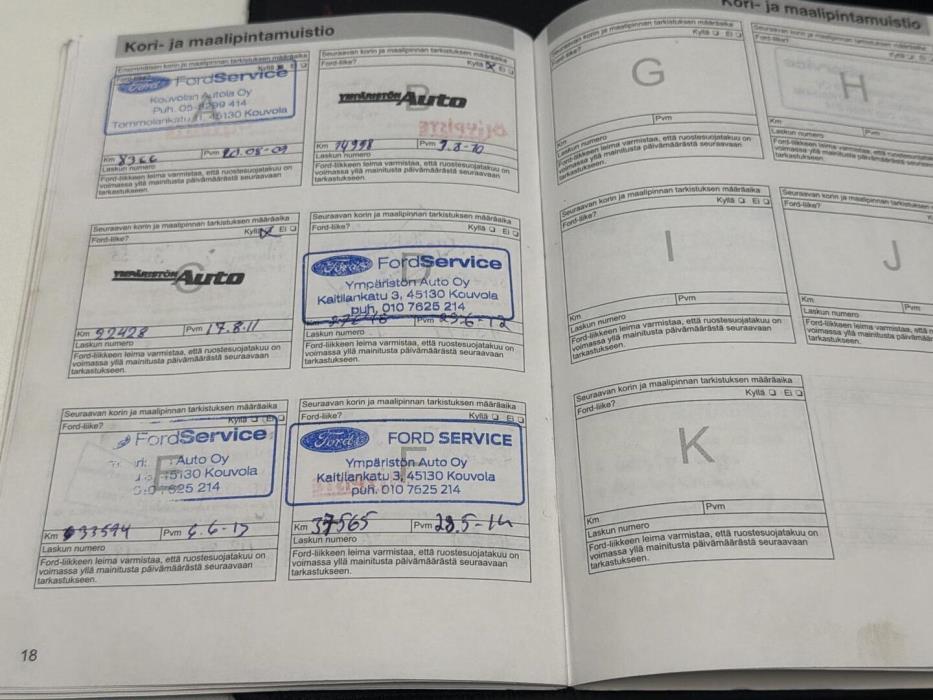 Kori- ja maalipintamuistio
Ensimmäisen korin ja maalipinnan tarkistuksen määräaika
Ford-liike?
Kyllä Ei
A
Ford FordService
Kouvolan Autola Oy
Puh. 05-8299 414
Tommolankatu 11, 45130 Kouvola
Km 8366 Pvm 20.08-09
Laskun numero
Ford-liikkeen leima varmistaa, että ruostesuojatakuu on
voimassa yllä mainitusta päivämäärästä seuraavaan
tarkastukseen.
Seuraavan korin ja maalipinnan tarkistuksen määräaika
Ford-liike?
Kyllä Ei
B
YMPÄRISTÖN Auto
Km 14998 Pvm 9.8-10
Laskun numero
Ford-liikkeen leima varmistaa, että ruostesuojatakuu on
voimassa yllä mainitusta päivämäärästä seuraavaan
tarkastukseen.
Seuraavan korin ja maalipinnan tarkistuksen määräaika
Ford-liike?
Kyllä Ei
C
YMPÄRISTÖN Auto
Km 22428 Pvm 17.8.11
Laskun numero
Ford-liikkeen leima varmistaa, että ruostesuojatakuu on
voimassa yllä mainitusta päivämäärästä seuraavaan
tarkastukseen.
Seuraavan korin ja maalipinnan tarkistuksen määräaika
Ford-liike?
Kyllä Ei
D
Ford FordService
Ympäristön Auto Oy
Kaitilankatu 3, 45130 Kouvola
puh. 010 7625 214
Km Pvm 29.6-12
Laskun numero
Ford-liikkeen leima varmistaa, että ruostesuojatakuu on
voimassa yllä mainitusta päivämäärästä seuraavaan
tarkastukseen.
Seuraavan korin ja maalipinnan tarkistuksen määräaika
Ford-liike?
Kyllä Ei
E
FordService
Auto Oy
45130 Kouvola
7625 214
Km 33594 Pvm 6.6-13
Laskun numero
Ford-liikkeen leima varmistaa, että ruostesuojatakuu on
voimassa yllä mainitusta päivämäärästä seuraavaan
tarkastukseen.
Seuraavan korin ja maalipinnan tarkistuksen määräaika
Ford-liike?
Kyllä Ei
F
Ford FORD SERVICE
Ympäristön Auto Oy
Kaitilankatu 3, 45130 Kouvola
puh. 010 7625 214
Km 37565 Pvm 28.5-14
Laskun numero
Ford-liikkeen leima varmistaa, että ruostesuojatakuu on
voimassa yllä mainitusta päivämäärästä seuraavaan
tarkastukseen.
18
Kori- ja maalipintamuistio
Seuraavan korin ja maalipinnan tarkistuksen määräaika
Ford-liike?
Kyllä Ei
G
Km Pvm
Laskun numero
Ford-liikkeen leima varmistaa, että ruostesuojatakuu on
voimassa yllä mainitusta päivämäärästä seuraavaan
tarkastukseen.
Seuraavan korin ja maalipinnan tarkistuksen määräaika
Ford-liike?
H
Km Pvm
Laskun numero
Ford-liikkeen leima varmistaa, että ruostesuojatakuu
voimassa yllä mainitusta päivämäärästä
tarkastukseen.
Seuraavan korin ja maalipinnan tarkistuksen määräaika
Ford-liike?
Kyllä Ei
I
Km Pvm
Laskun numero
Ford-liikkeen leima varmistaa, että ruostesuojatakuu on
voimassa yllä mainitusta päivämäärästä seuraavaan
tarkastukseen.
Seuraavan korin ja maalipinnan tarkistuksen
Ford-liike?
J
Km Pvm
Laskun numero
Ford-liikkeen leima varmistaa, että
voimassa yllä mainitusta päivämäärästä
tarkastukseen.
Seuraavan korin ja maalipinnan tarkistuksen määräaika
Ford-liike?
Kyllä Ei
K
Km Pvm
Laskun numero
Ford-liikkeen leima varmistaa, että ruostesuojatakuu on
voimassa yllä mainitusta päivämäärästä seuraavaan
tarkastukseen.